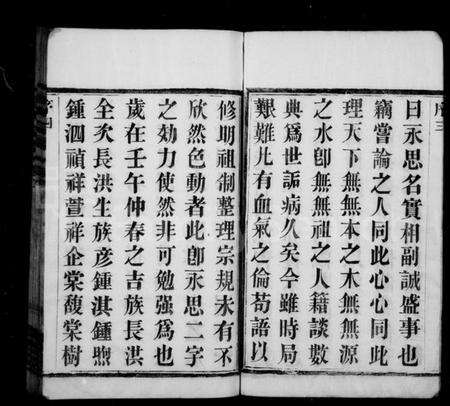 序三
曰永思名實相副誠盛事也
竊嘗論之人同此心心同此
理天下無無本之木無無源
之水卽無無祖之人籍談數
典爲世詬病久矣今雖時局
艱難凡有血氣之倫苟語以
修明祖制整理宗規未有不
欣然色動者此卽永思二字
之効力使然非可勉强爲也
歲在壬午仲春之吉族長洪
全夊長洪生族彥鍾淇鍾煦
鍾泗禎祥萱祥企棠馥棠樹
序四